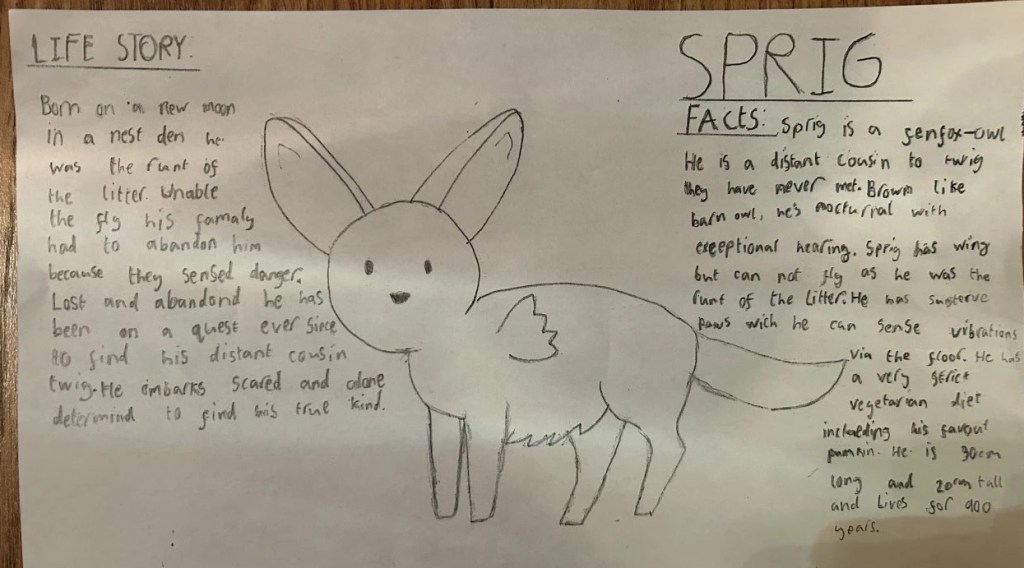 LIFE STORY.
Born on a new moon
in a nest den he
was the runt of
the litter. Unable
the fly his famaly
had to abandon him
because they sensed danger.
Lost and abandond he has
been on a quest ever since
to find his distant cousin
twig. He embarks scared and alone
determind to find his true kind.
SPRIG
FACTS: Sprig is a fenfox-owl
He is a distant cousin to twig
they have never met. Brown like
barn owl, he's nocturnal with
exeeptional hearing. Sprig has wing
but can not fly as he was the
runt of the litter. He has
paws wich he can sense vibrations
via the floor. He has
a very strict
vegetarian diet
including his favout
He is 30cm
long and 20cm tall
and lives for 900
years.